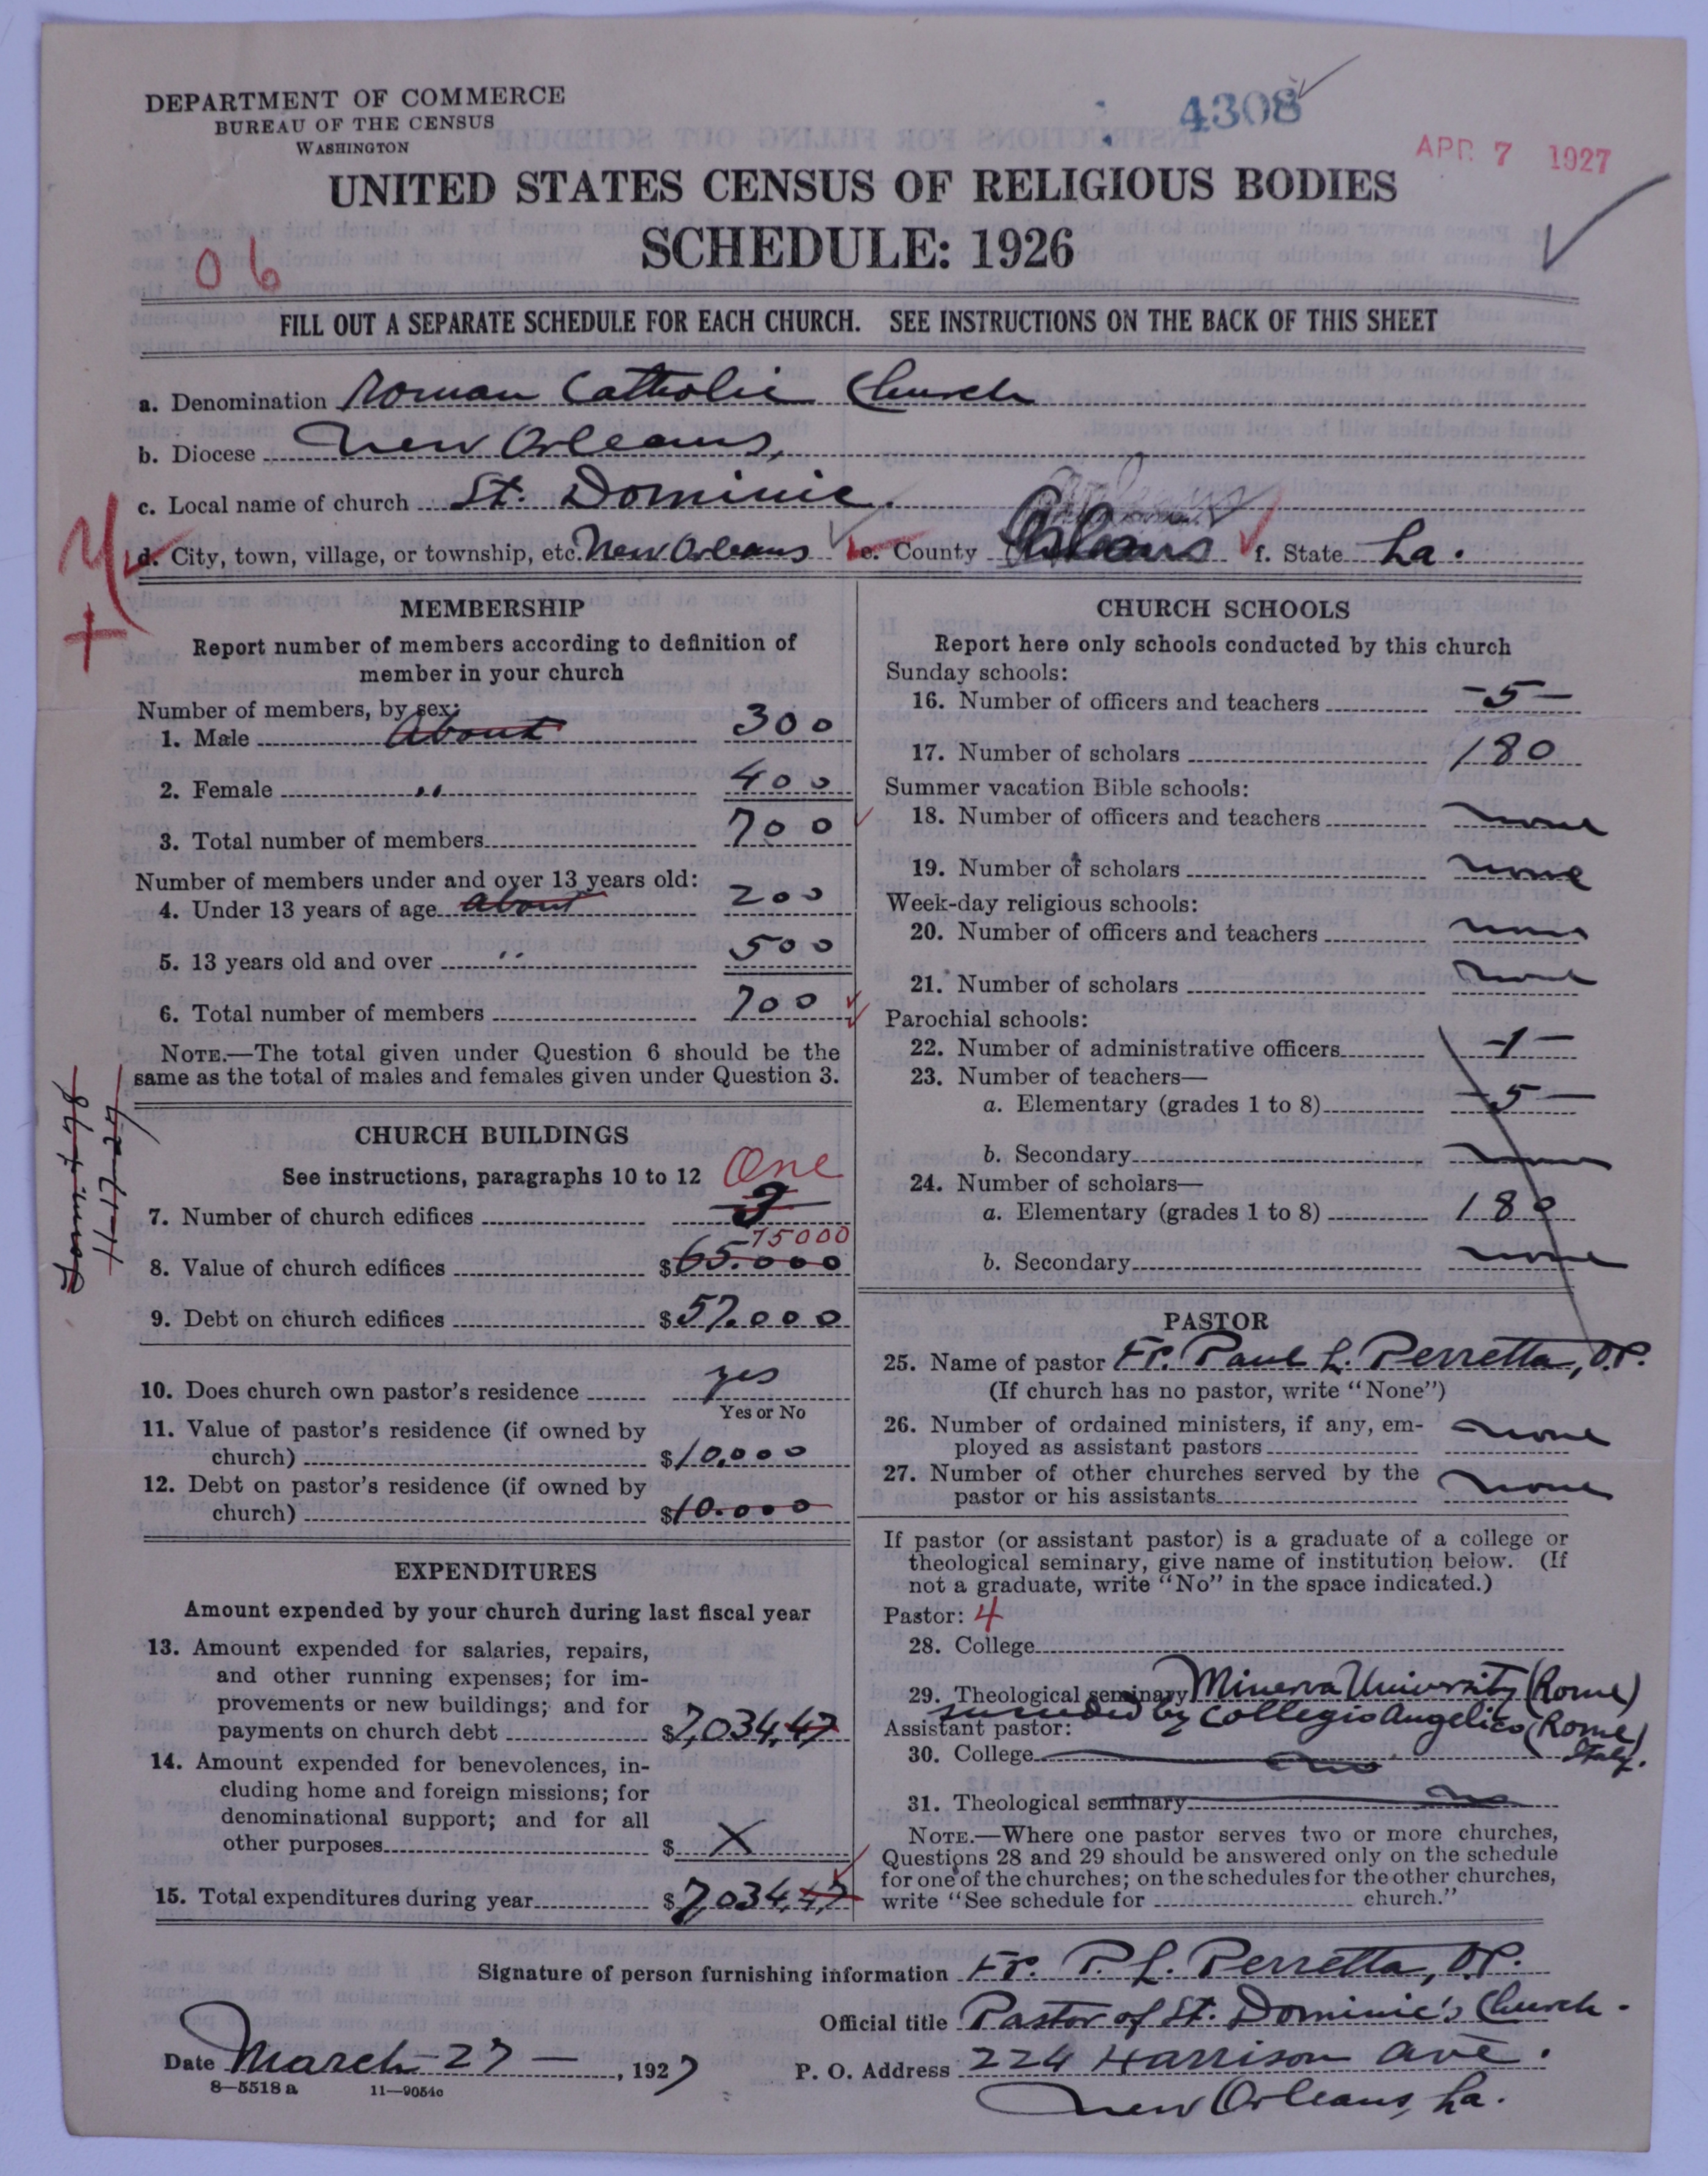 DEPARTMENT OF COMMERCE
BUREAU OF THE CENSUS
WASHINGTON
4308
APR 7 1927
UNITED STATES CENSUS OF RELIGIOUS BODIES
SCHEDULE: 1926
06
FILL OUT A SEPARATE SCHEDULE FOR EACH CHURCH. SEE INSTRUCTIONS ON THE BACK OF THIS SHEET
a. Denomination Roman Catholic Church
b. Diocese New Orleans,
c. Local name of church St. Dominic.
d. City, town, village, or township, etc. New Orleans e. County Orleans f. State La.
MEMBERSHIP
Report number of members according to definition of
member in your church
Number of members, by sex:
1. Male About 300
2. Female " 400
3. Total number of members 700
Number of members under and over 13 years old:
4. Under 13 years of age about 200
5. 13 years old and over " 500
6. Total number of members 700
NOTE.—The total given under Question 6 should be the
same as the total of males and females given under Question 3.
CHURCH BUILDINGS
See instructions, paragraphs 10 to 12 One
7. Number of church edifices
75000
8. Value of church edifices $65.000
9. Debt on church edifices $57.000
10. Does church own pastor's residence yes
Yes or No
11. Value of pastor's residence (if owned by
church) $10,000
12. Debt on pastor's residence (if owned by
church) $10.000
EXPENDITURES
Amount expended by your church during last fiscal year
13. Amount expended for salaries, repairs,
and other running expenses; for im-
provements or new buildings; and for
payments on church debt $7,034.47
14. Amount expended for benevolences, in-
cluding home and foreign missions; for
denominational support; and for all
other purposes $ X
15. Total expenditures during year $7,034.47
CHURCH SCHOOLS
Report here only schools conducted by this church
Sunday schools:
16. Number of officers and teachers -5-
17. Number of scholars 180
Summer vacation Bible schools:
18. Number of officers and teachers none
19. Number of scholars none
Week-day religious schools:
20. Number of officers and teachers none
21. Number of scholars none
Parochial schools:
22. Number of administrative officers -1-
23. Number of teachers—
a. Elementary (grades 1 to 8) -5-
b. Secondary none
24. Number of scholars—
a. Elementary (grades 1 to 8) 180
b. Secondary none
PASTOR
25. Name of pastor Fr. Paul L. Perretta, O.P.
(If church has no pastor, write "None")
26. Number of ordained ministers, if any, em-
ployed as assistant pastors none
27. Number of other churches served by the
pastor or his assistants none
If pastor (or assistant pastor) is a graduate of a college or
theological seminary, give name of institution below. (If
not a graduate, write "No" in the space indicated.)
Pastor: 4
28. College
29. Theological seminary Minerva University (Rome)
succeded by Collegio Angelico (Rome)
Italy.
Assistant pastor:
30. College no
31. Theological seminary no
NOTE.—Where one pastor serves two or more churches,
Questions 28 and 29 should be answered only on the schedule
for one of the churches; on the schedules for the other churches,
write "See schedule for church."
Signature of person furnishing information Fr. P. L. Perretta, O.P.
Official title Pastor of St. Dominic's Church.
Date March 27 —, 1927 P. O. Address 224 Harrison Ave.
New Orleans, La.
8—5518 a 11—9054c